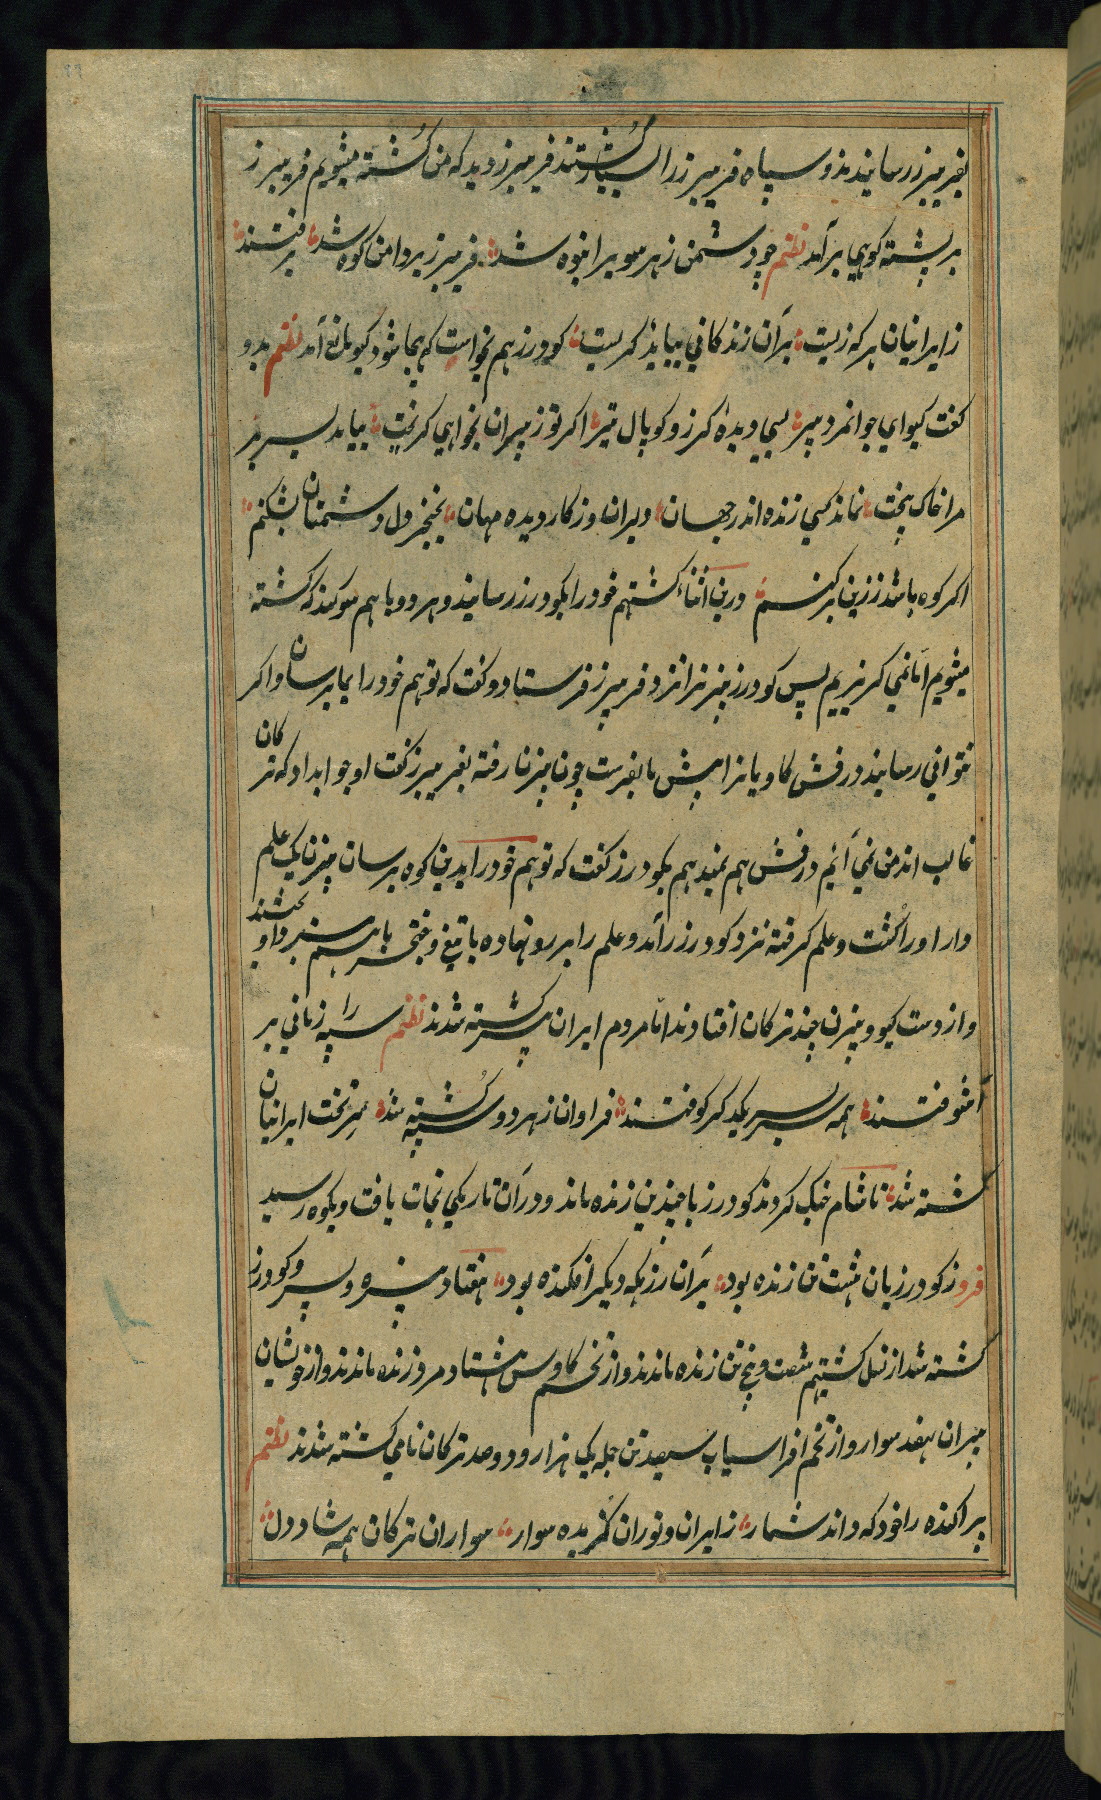 بفریبرز رسانیدند و سپاه فریبرز را بسیار کشتند فریبرز دید که من کشته میشویم فریبرز
بر پشته کوهی برآمد نظم چو دشمن ز هر سو بر انبوه شد فریبرز بر دامن کوه شد برفتند
ز ایرانیان هر که زیست بر آن زندکانی بباید کریست کودرز هم نخواست که پیجا شود کیو مانع آمد نظم بدو
کفت کیو ای جوانمرد پیر بسی دیده کرز و کوپال تیر اکر تو ز پیران نخواهی کریخت بباید بسر بر
مرا خاک بیخت نماند کسی زنده اندر جهان دلیران وز کار دیده مهان بخنجر دل دشمنان بشکنم
اکر کوه باشد ز بن برکنم درین اثناء کشتهم خود را بکودرز رسانید و هر دو با هم سوکند که کشته
میشویم امّا نمی کریزیم پس کودرز بیژن را نزد فریبرز فرستاد و کفت که تو هم خود را بما برسان و اکر
نتوانی رسانید درفش کاویانرا پیش ما بفرست چون بیژن رفته بفریبرز کفت او جواب داد که ترکان
غالب اند من نمی آیم درفش هم نمیدهم بکودرز کفت که تو هم خود را بدین کوه برسان بیژن یک علم
دار او را کشت و علم کرفته نزد کودرز آمد و علم را برو نهاده با تیغ و خنجر باهم نبرد او بکشتند
و از دست کیو و بیژن چند ترکان افتادند امّا مردم ایران بیشتر کشته شدند نظم سپه را زمانی بر
آشوفتند همه بسر یکدکر کوفتند فراوان ز هر دو سپه کشته شد سر بخت ایرانیان
کشته شد تا شام جنک کردند کودرز با چندین زنده ماند و در آن تاریکی نجات یافت و بکوه رسید
فرد ز کودرزیان هشت تن زنده بود بر آن رزمکه دیکر افکنده بود هفتاد نبیره و پسر و کودرز
کشته شد از نسل کشتهم شصت و پنج تن زنده ماندند و از تخم کاوس هشتاد مرد زنده ماندند و از خویشان
پیران نهصد سوار و از تخم افراسیاب سیصد تن جمله یک هزار و دو صد ترکان نامی کشته شدند نظم
پراکنده را خود که داند شمار ز ایران و توران کزیده سوار سواران ترکان همه شاد دل